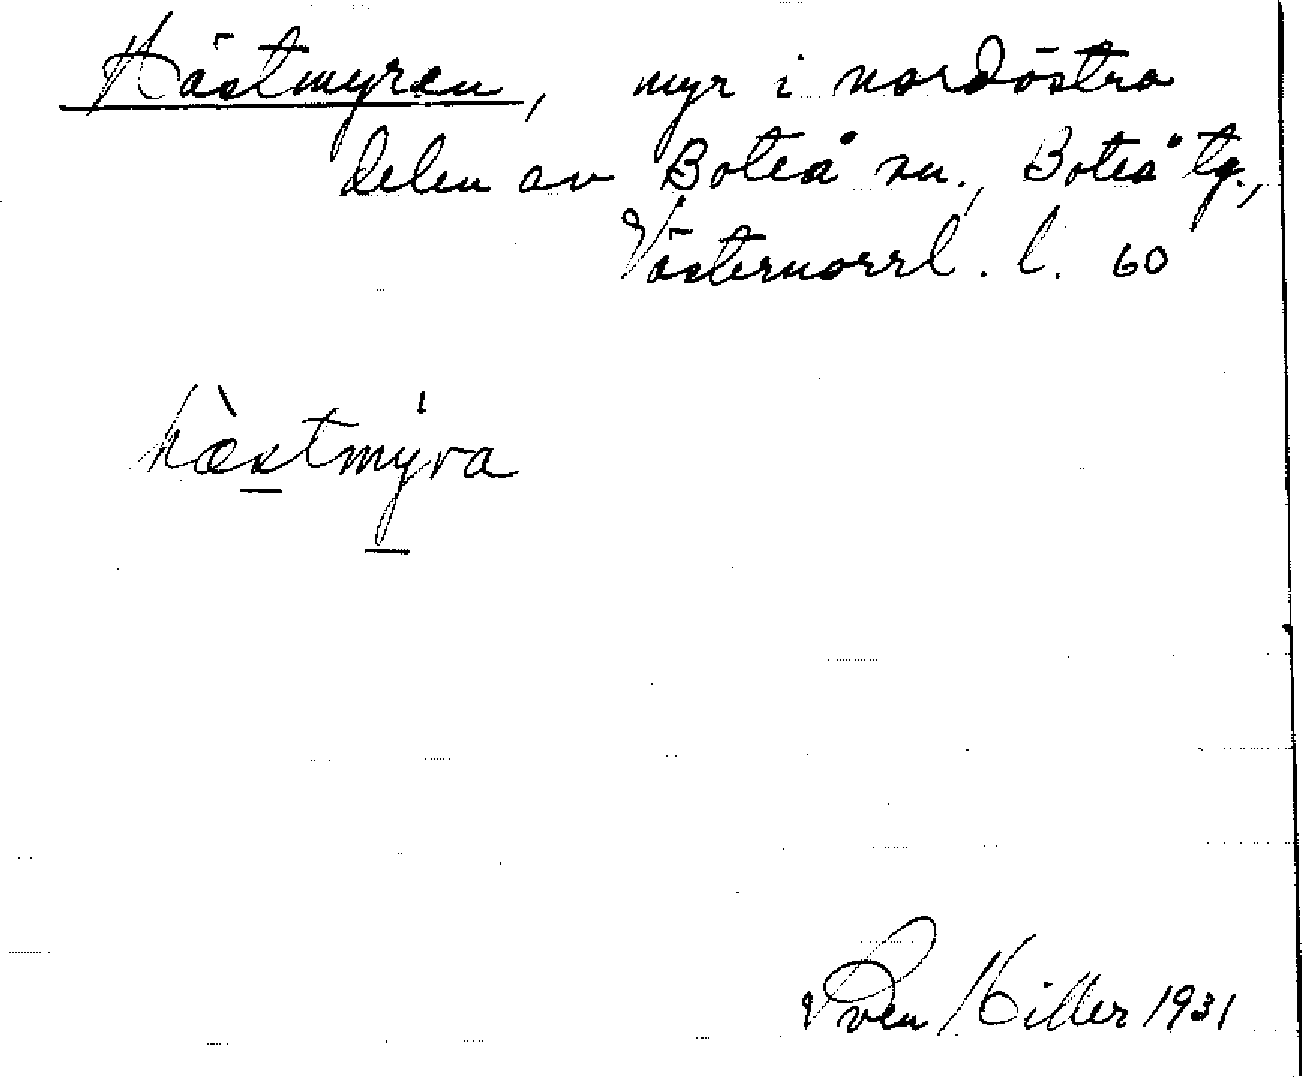 Hästmyren, myr i nordöstra
delen av Boteå sn., Boteå tg.,
Västernorrl. l. 60
hæ̀stmýra
Sven Hiller 1931